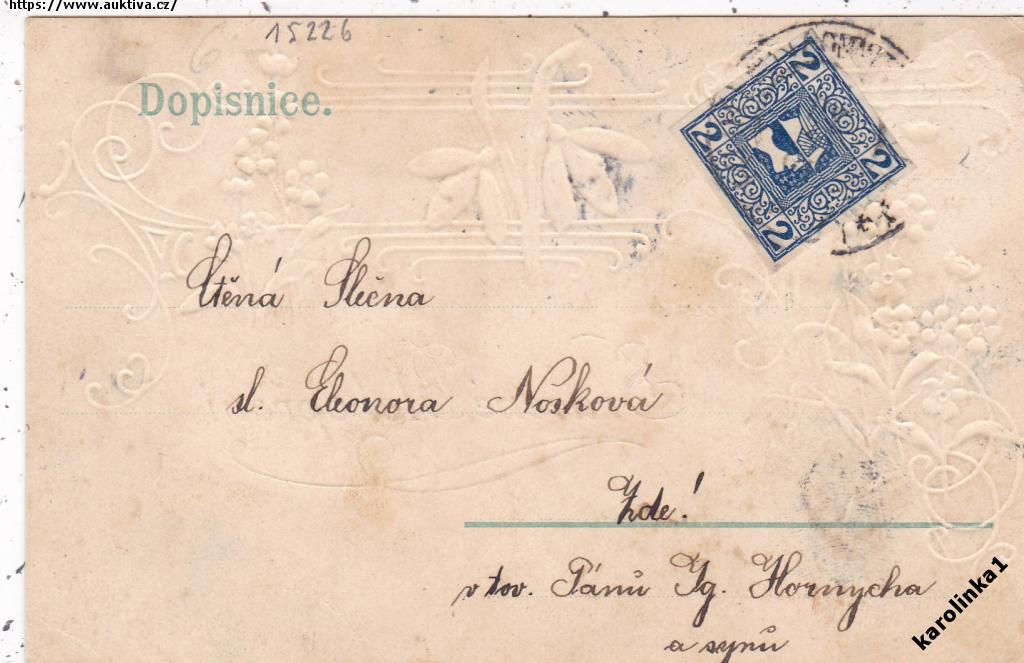 https://www.auktiva.cz/
15226
Dopisnice.
2 2 2 2
Ctěná Slečna
sl. Eleonora Nosková
Zde!
v tov. Pánů Ig. Hornycha
a synů
karolinka1